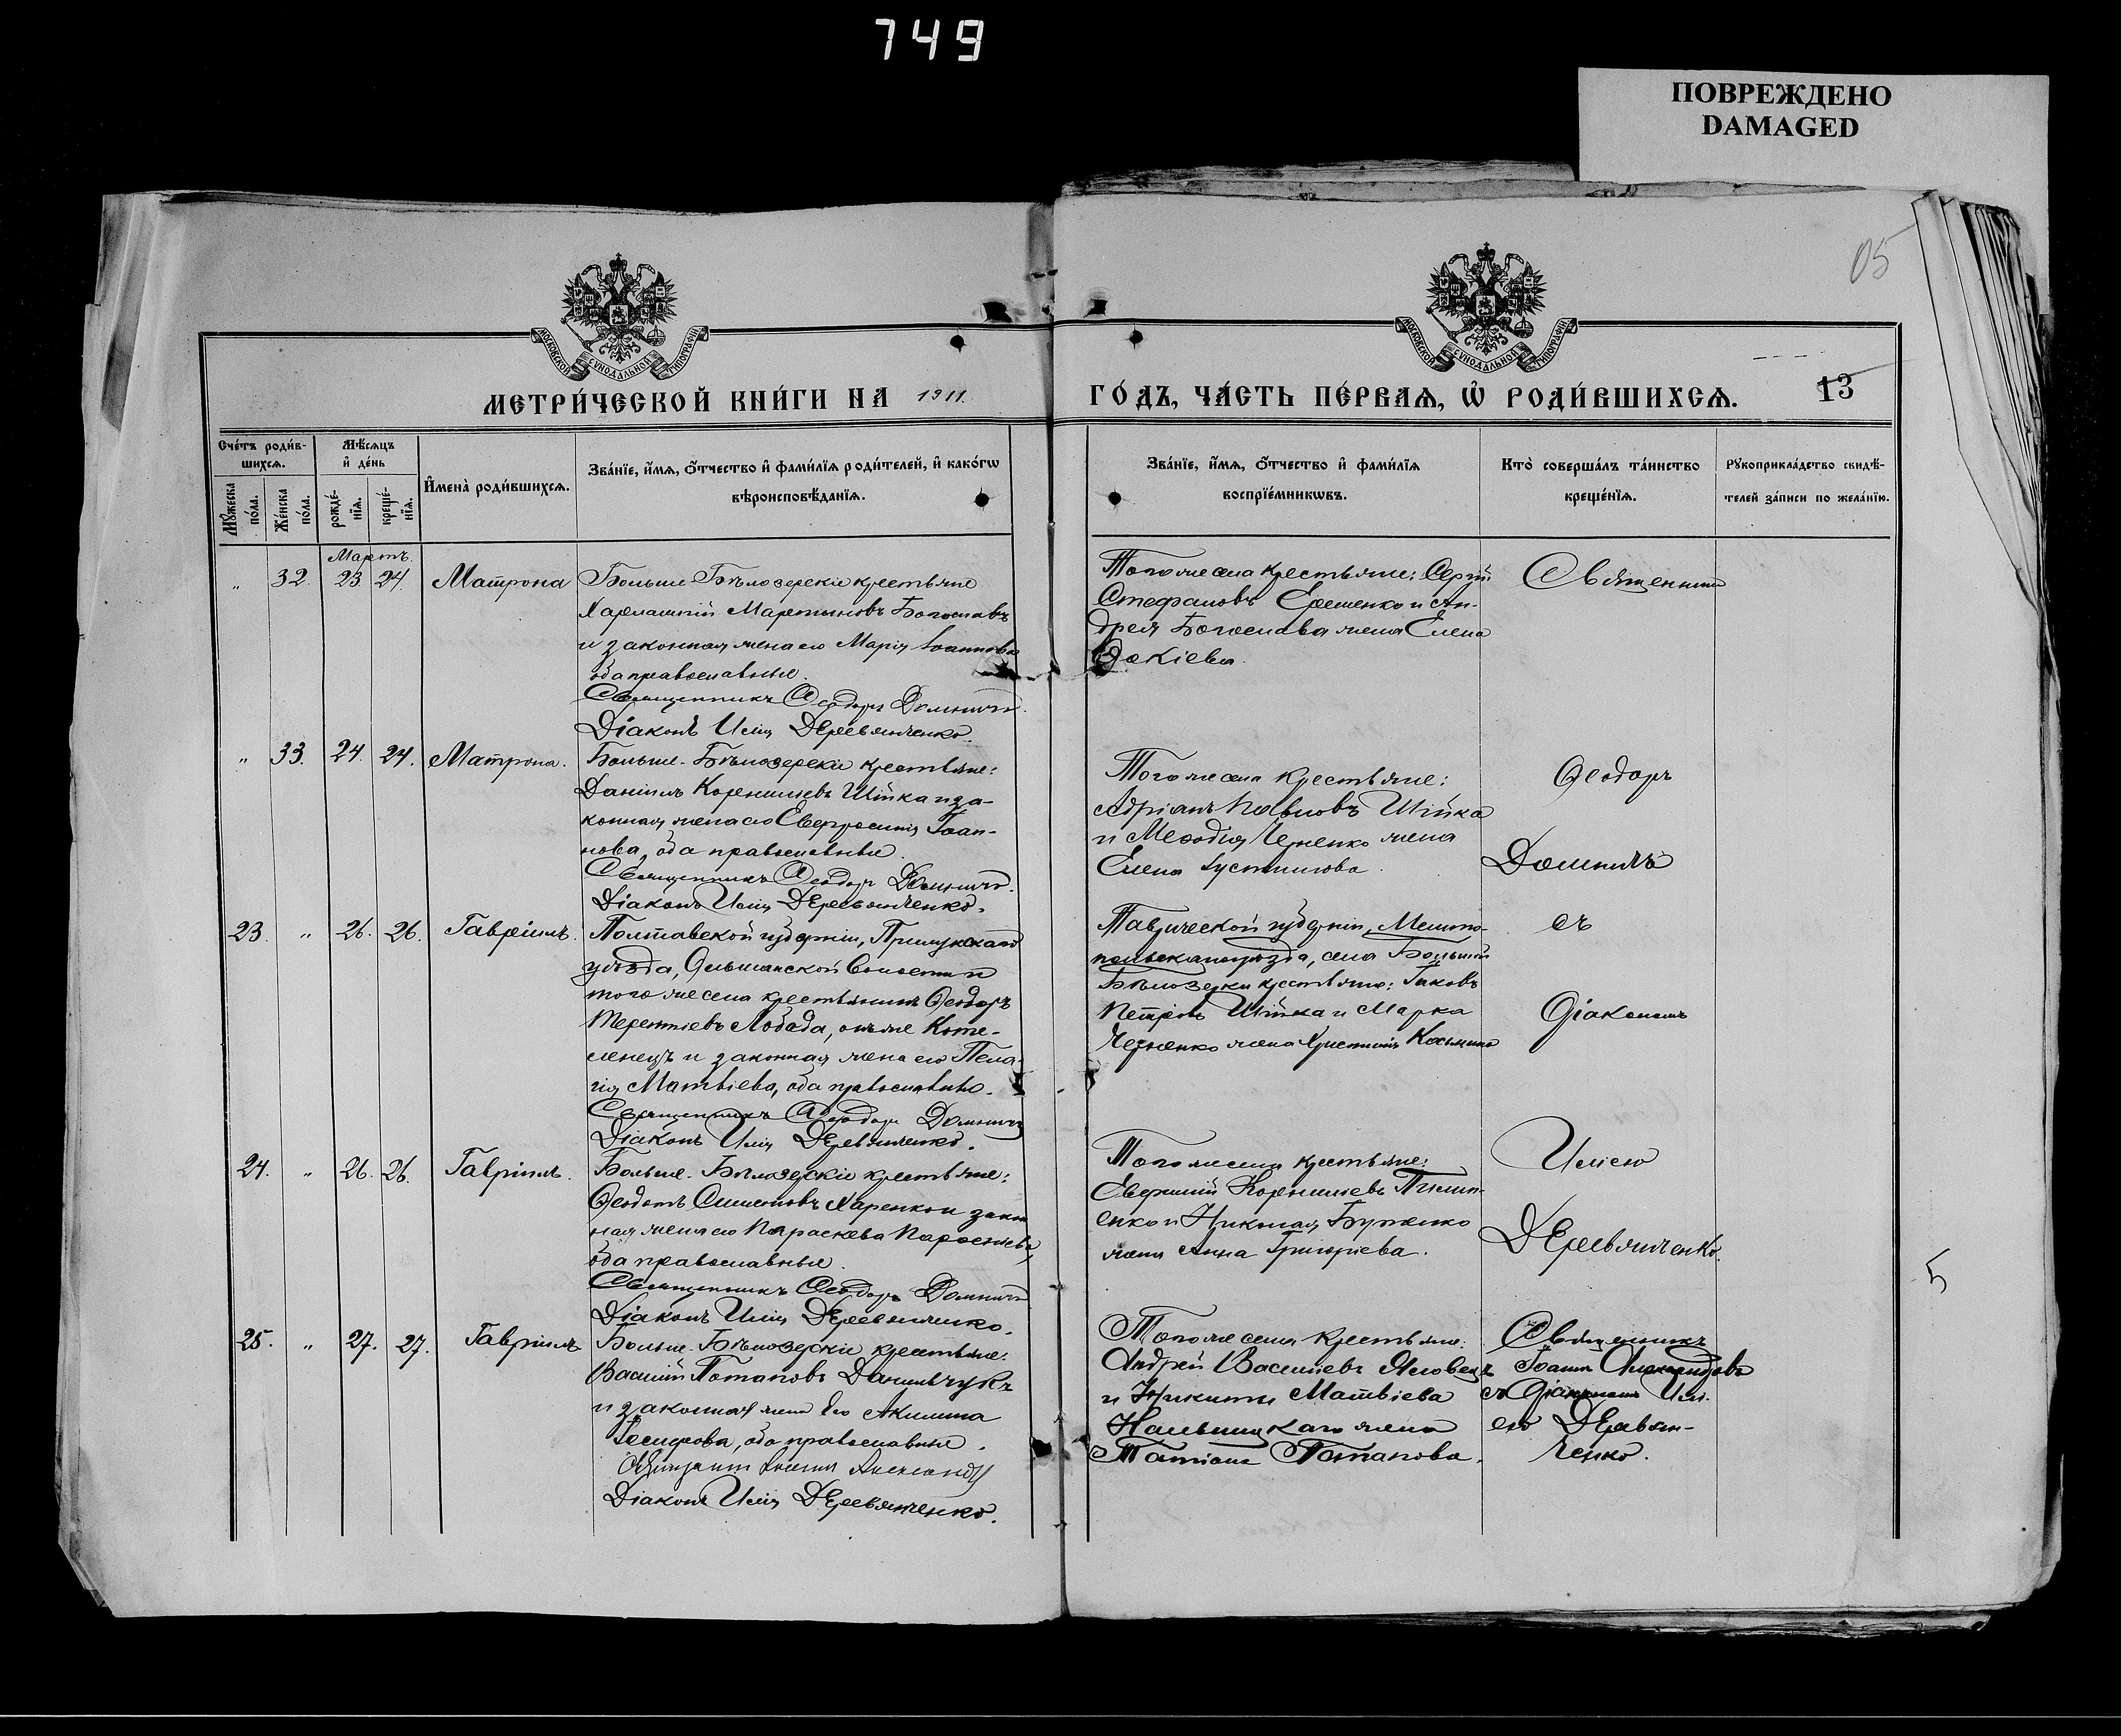 749
ПОВРЕЖДЕНО
DAMAGED
05
МОСКОВСКОЙ СУНОДАЛЬНОЙ ТИПОГРАФІИ
МОСКОВСКОЙ СУНОДАЛЬНОЙ ТИПОГРАФІИ
МЕТРИ́ЧЕСКОЙ КНИ́ГИ НА 1911.
ГО́ДЪ, ЧА́СТЬ ПЕ́РВАѦ, Ѡ҆ РОДИ́ВШИХСѦ.
13
Сче́тъ роди́в-
шихсѧ.
Мѣ́сѧцъ
и҆ де́нь
Мꙋ́жеска
по́ла.
Же́нска
по́ла.
рожде́-
нїѧ.
креще́-
нїѧ.
И҆мена̀ роди́вшихсѧ.
Зва́нїе, и҆́мѧ, ѻ҆́тчество и҆ фами́лїѧ роди́телей, и҆ како́гѡ
вѣроисповѣ́данїѧ.
Зва́нїе, и҆́мѧ, ѻ҆́тчество и҆ фами́лїѧ
воспрїе́мникѡвъ.
Кто̀ соверша́лъ та́инство
креще́нїѧ.
Рꙋкоприкла́дство свидѣ́-
телей за́писи по жела́нїю.
Мартъ.
" 32. 23 24. Матрона
Больше-Бѣлозерскіе крестьяне
Харлампій Мартыновъ Богославъ
и законная жена его Марія Іоаннова
оба православные.
Священникъ Ѳеодоръ Домничъ.
Діаконъ Илія Деревянченко.
Того же села крестьяне: Сергій
Стефановъ Ерешенко и Ан-
дрея Богослава жена Елена
Священник
" 33. 24. 24. Матрона.
Больше-Бѣлозерскіе крестьяне:
Даніилъ Корниліевъ Шійка и за-
конная жена его Евфросинія Іоан-
нова, оба православные.
Священникъ Ѳеодоръ Домничъ.
Діаконъ Илія Деревянченко.
Того же села крестьяне:
Адріанъ Павловъ Шійка
и Меѳодія Черненко жена
Елена Іустинова.
Ѳеодоръ
Домничъ
23. " 26. 26. Гавріилъ.
Полтавской губерніи, Прилукскаго
уѣзда, Ольшанской волости и
того же села крестьянинъ Ѳеодоръ
Терентіевъ Лобада, онъ же Коте-
ленецъ и законная жена его Пела-
гія Матвіева, оба православные.
Священникъ Ѳеодоръ Домничъ
Діаконъ Илія Деревянченко.
Таврической губерніи, Мелито-
польскаго уѣзда, села Большой
Бѣлозерки крестьяне: Іаковъ
Петровъ Шійка и Марка
Черненко жена Христина Косьмина
съ
Діакономъ
24. " 26. 26. Гавріилъ.
Больше-Бѣлозерскіе крестьяне:
Ѳеодотъ Симеоновъ Харенко и закон
ная жена его Параскева
оба православные.
Священникъ Ѳеодоръ Домничъ
Діаконъ Илія Деревянченко.
Того же села крестьяне:
Евфимій Корниліевъ Пилип-
енко и Николая Бутенко
жена Анна Григоріева.
Иліею
Деревянченко.
5
25. " 27. 27. Гавріилъ
Больше-Бѣлозерскіе крестьяне:
Василій Потаповъ Данильчукъ
и законная жена его Акилина
Іосифова, оба православные.
Діаконъ Илія Деревянченко.
Того же села крестьяне:
Андрей Василіевъ Яловецъ
и Никиты Матвіева
жена
Татіана Потапова.
Священникъ
Іоаннъ Александровъ
съ Діакономъ Илі-
ею Деревян-
ченко.